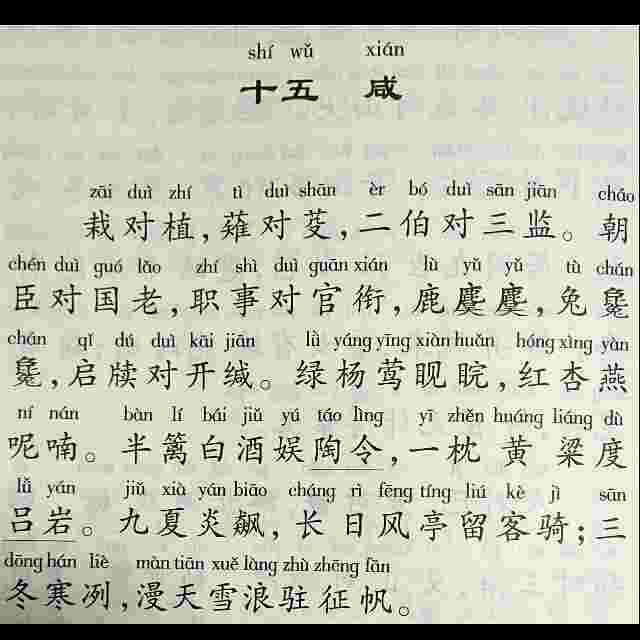 shí wǔ xián
十五 咸
zāi duì zhí tì duì shān èr bó duì sān jiān cháo
栽对植,薙对芟,二伯对三监。朝
chén duì guó lǎo zhí shì duì guān xián lù yǔ yǔ tù chán
臣对国老,职事对官衔,鹿麌麌,兔毚
chán qǐ dú duì kāi jiān lǜ yáng yīng xiàn huǎn hóng xìng yàn
毚,启牍对开缄。绿杨莺睍睆,红杏燕
ní nán bàn lí bái jiǔ yú táo lìng yī zhěn huáng liáng dù
呢喃。半篱白酒娱陶令,一枕黄粱度
lǚ yán jiǔ xià yán biāo cháng rì fēng tíng liú kè jì sān
吕岩。九夏炎飙,长日风亭留客骑;三
dōng hán liè màn tiān xuě làng zhù zhēng fān
冬寒冽,漫天雪浪驻征帆。